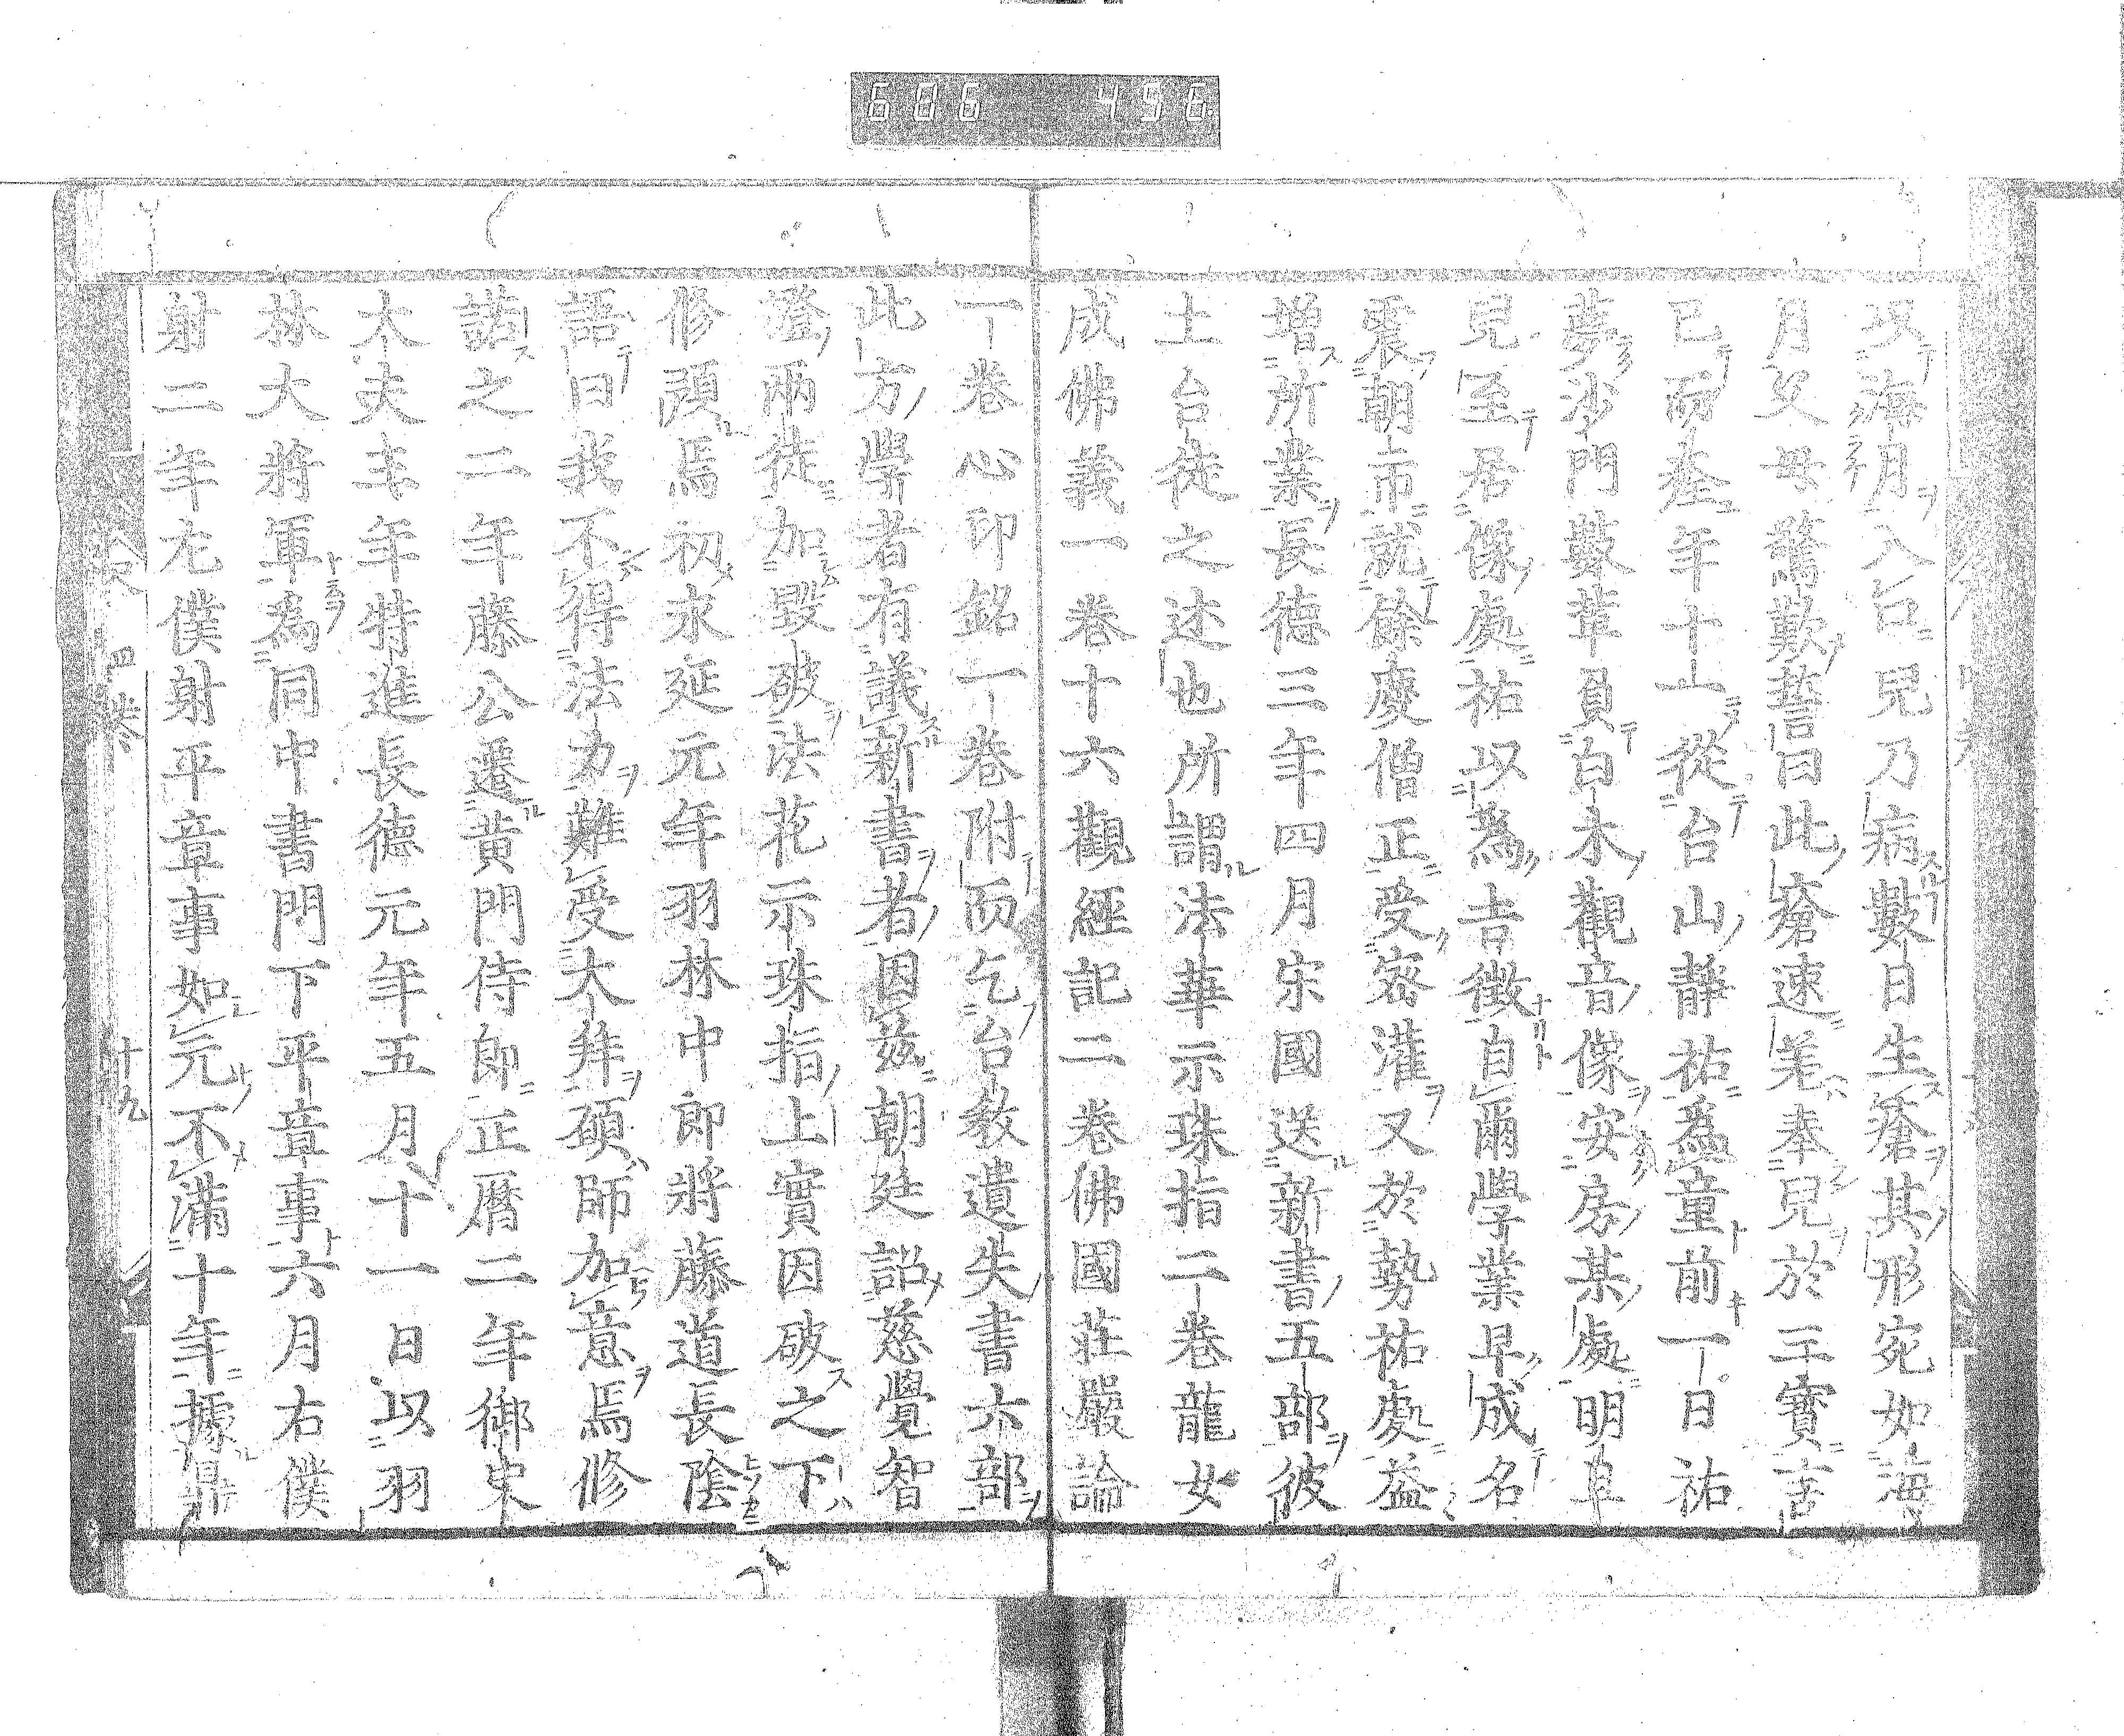 以海月入台兒乃病數日生瘡其形宛如海
月父母驚歎誓曰此瘡速差奉兒於三寶言
已而痊年十一從台山靜祐為童前一日祐
夢沙門數輩負白木觀音像安房某處明旦
兒至居像處祐以為吉徵自爾學業早成名
震朝市就餘慶僧正受密灌又於勢祐處益
增所業長德三年四月宋國送新書五部彼
土台徒之述也所謂法華示珠指二卷龍女
成佛義一卷十六觀經記二卷佛國莊嚴論
一卷心印銘一卷附而乞台教遺失書六部
此方學者有議新書者因茲朝廷詔慈覺智
證兩徒加毀破法花示珠指上實因破之下
修預焉初永延元年羽林中郎將藤道長陰
語曰我不得法力難受大拜碩師加意焉修
諾之二年藤公遷黃門侍郎正曆二年御史
大夫五年特進長德元年五月十一日以羽
林大將軍為同中書門下平章事六月右僕
射二年左僕射平章事如元不滿十年據鼎
四卷
十九
606 456